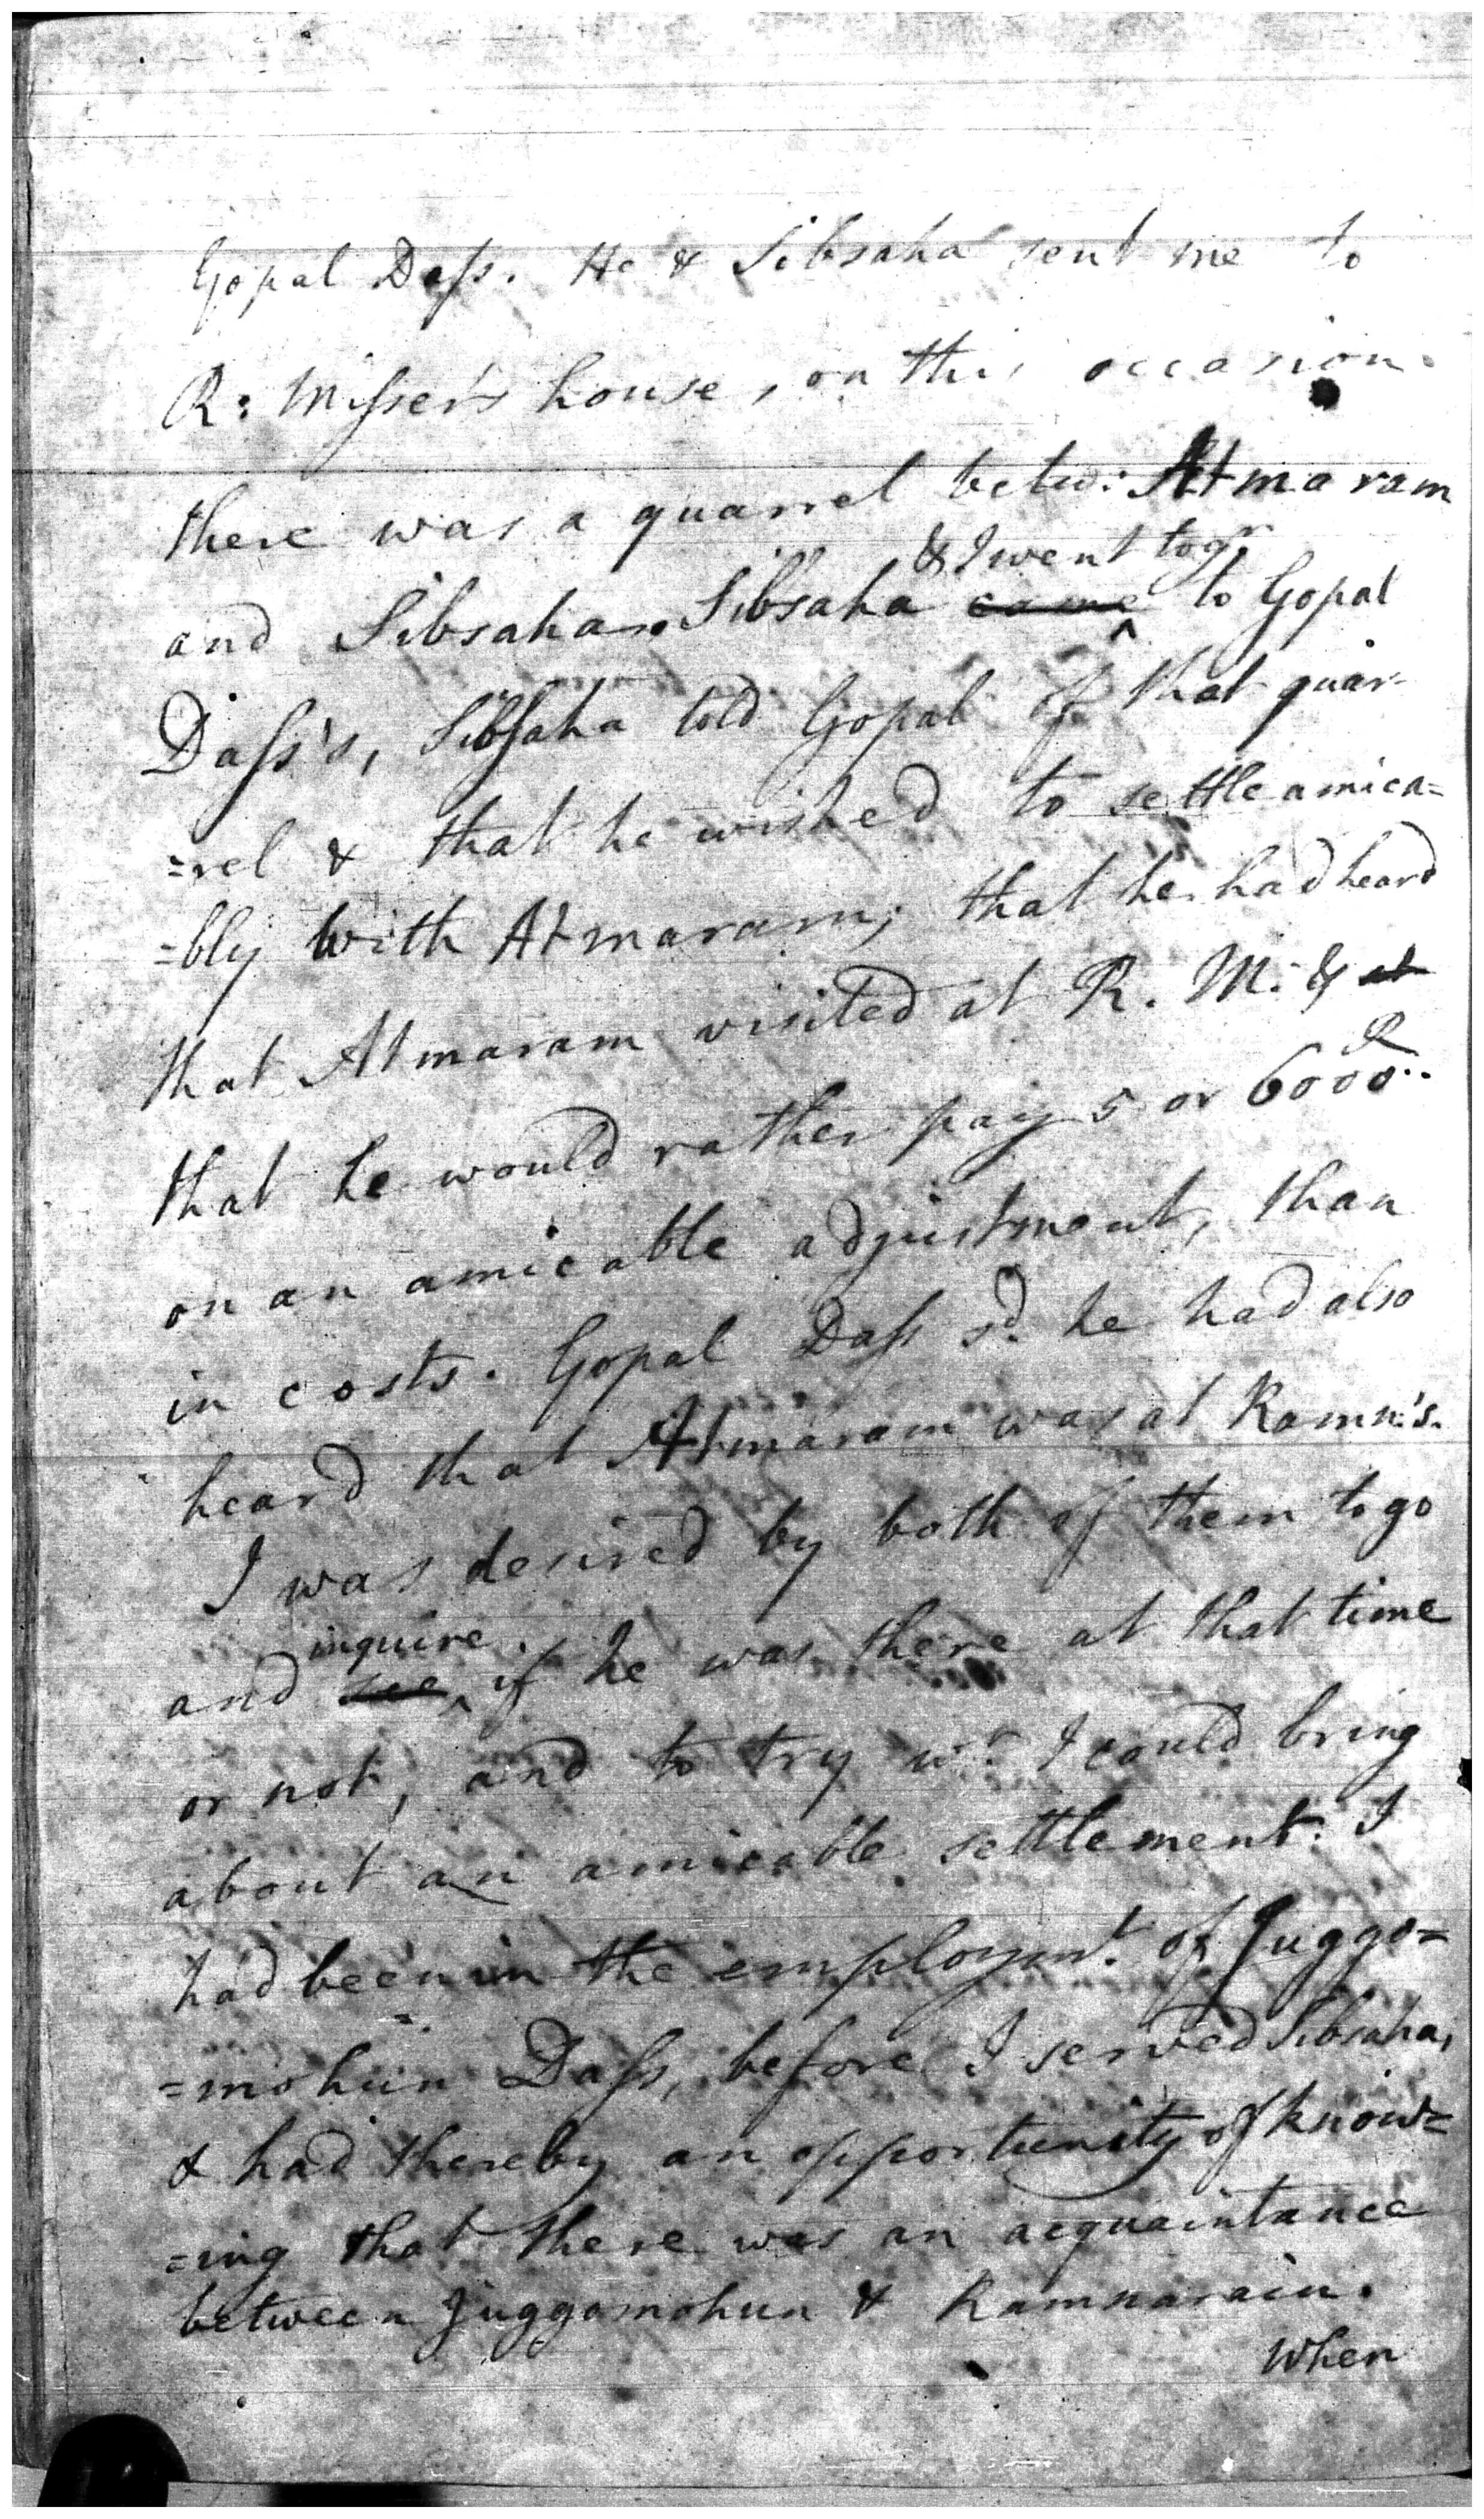 Gopal Dass. He & Sibsaha sent me to
R: Misser's house, on this occasion.
there was a quarrel betw: Atmaram
& I went togr.
and Sibsaha. Sibsaha came to Gopal
Dass's, Sibsaha told Gopal of that quar-
=rel & that he wished to settle amica=
=bly with Atmaram; that he had heard
that Atmaram visited at R. M. & at
that he would rather pay 5 or 6000 R
on an amicable adjustment, than
in costs. Gopal Dass sd. he had also
heard that Atmaram was at Ramn's.
I was desired by both of them to go
inquire
and see if he was there at that time
or not, and to try wr. I could bring
about an amicable settlement. I
had been in the employmt. of Juggo=
=mohun Dass, before I served Sibsaha,
& had thereby an opportunity of know=
=ing that there was an acquaintance
between Juggomohun & Ramnarain.
When